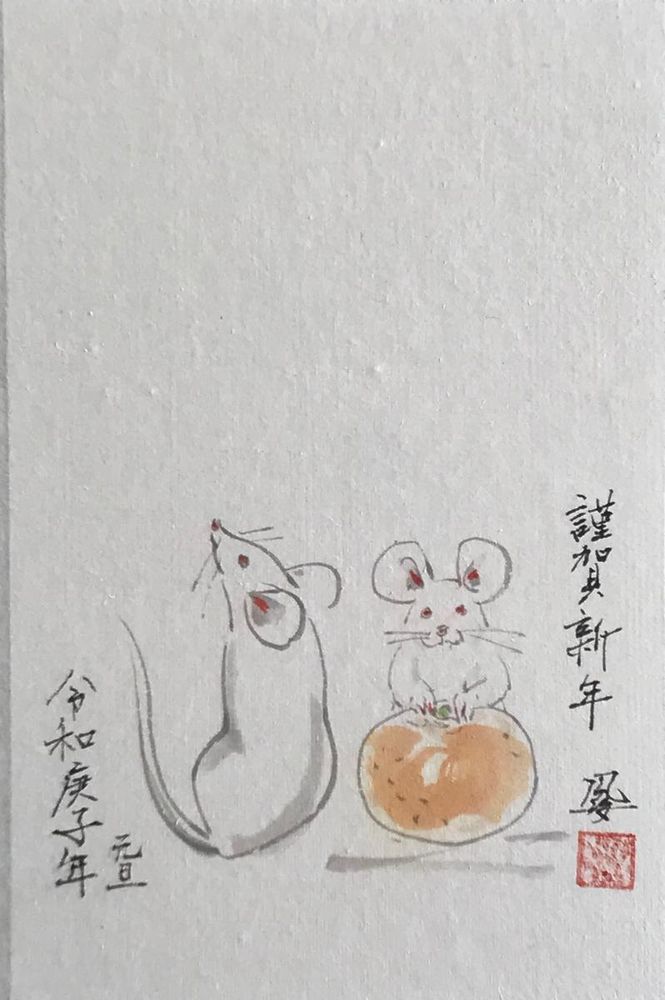 謹賀新年
令和庚子年
元旦